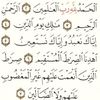 الْحَمْدُ لِلَّهِ رَبِّ الْعَالَمِينَ ۝ الرَّحْمَٰنِ
الرَّحِيمِ ۝ مَالِكِ يَوْمِ الدِّينِ ۝
إِيَّاكَ نَعْبُدُ وَإِيَّاكَ نَسْتَعِينُ ۝
اهْدِنَا الصِّرَاطَ الْمُسْتَقِيمَ ۝ صِرَاطَ
الَّذِينَ أَنْعَمْتَ عَلَيْهِمْ غَيْرِ الْمَغْضُوبِ
عَلَيْهِمْ وَلَا الضَّالِّينَ ۝